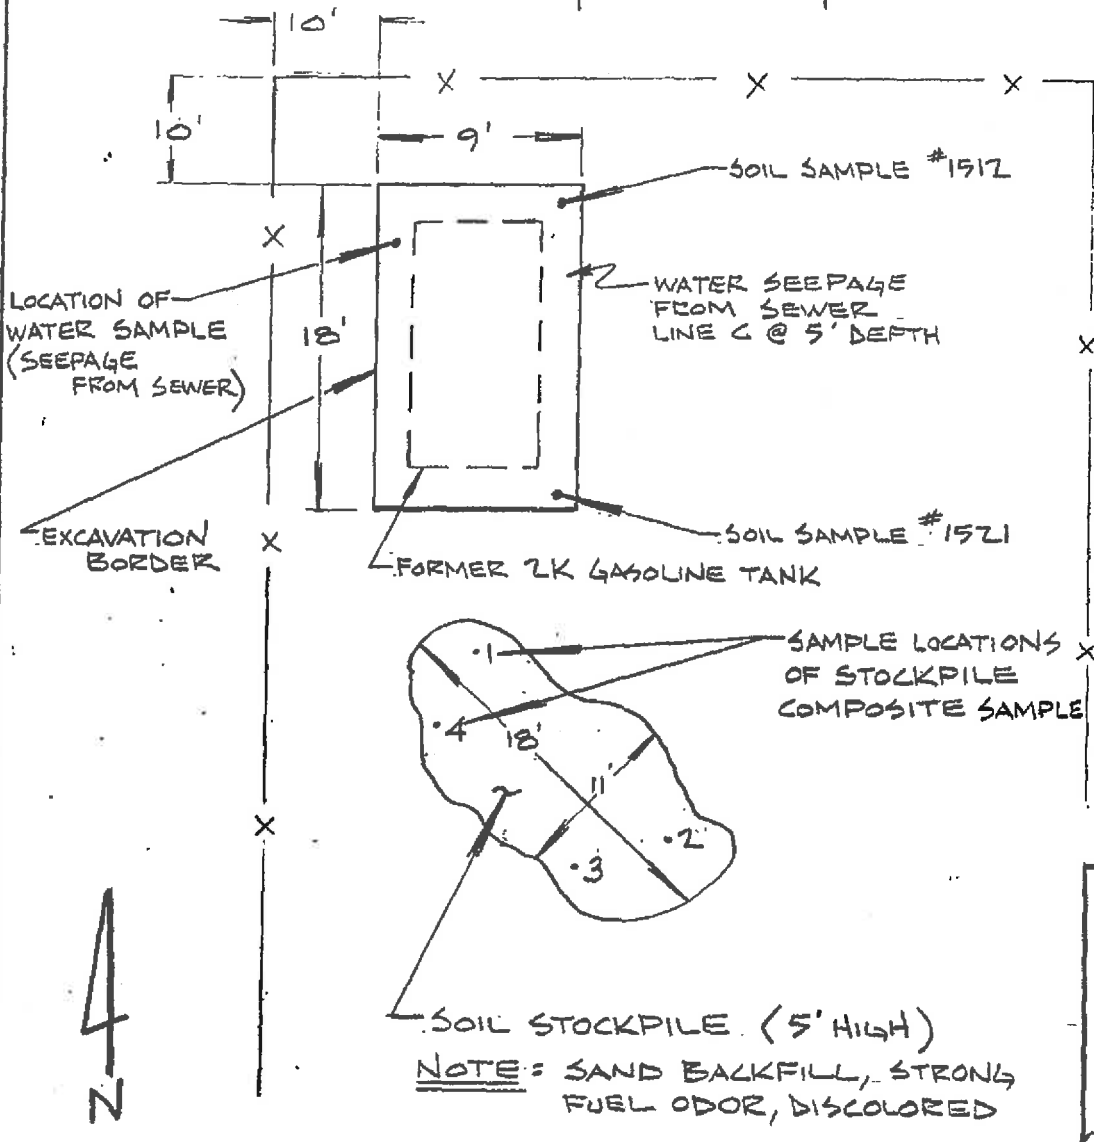 10'
X X X
10'
9'
SOIL SAMPLE #1512
X
LOCATION OF
WATER SAMPLE
(SEEPAGE
FROM SEWER)
WATER SEEPAGE
FROM SEWER
LINE C @ 5' DEPTH
18'
X
EXCAVATION
BORDER
X
SOIL SAMPLE #1521
FORMER 2K GASOLINE TANK
1
SAMPLE LOCATIONS
OF STOCKPILE
COMPOSITE SAMPLE
X
4
18'
11'
X
2
3
SOIL STOCKPILE (5' HIGH)
NOTE: SAND BACKFILL, STRONG
FUEL ODOR, DISCOLORED
N